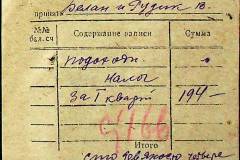 приказа Белан и Гудик В.
№№ бал. сч Содержание записи Сумма
подоходн.
налог
за I кварт 194-
Итого
сто девяносто четыре